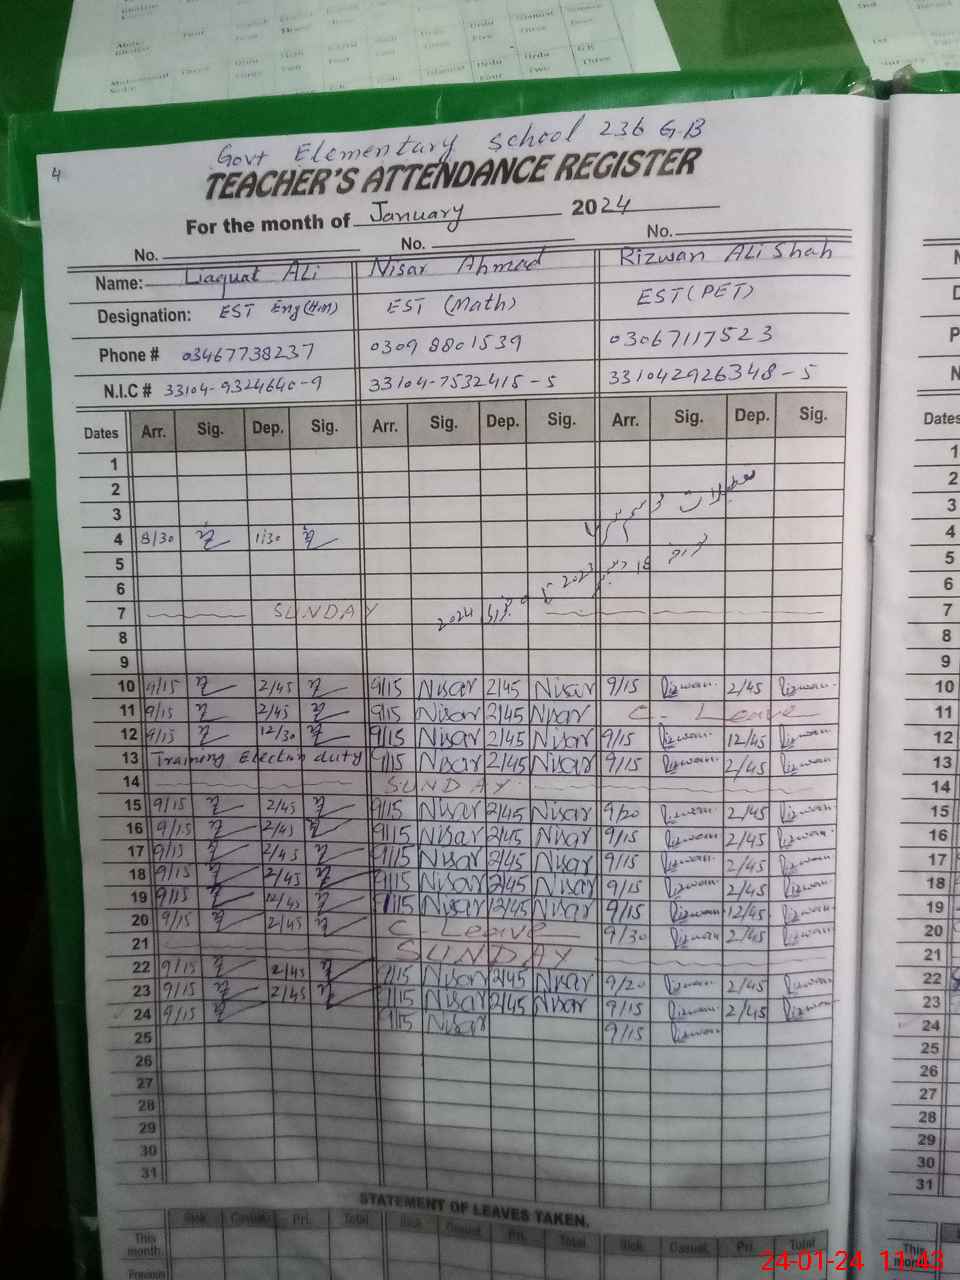 4
Govt Elementary School 236 G.B
TEACHER'S ATTENDANCE REGISTER
For the month of January 2024
No. No. No.
Name: Liaquat Ali Nisar Ahmad Rizwan Ali Shah
Designation: EST Eng(Hm) EST (Math) EST (PET)
Phone # 03467738237 0309 8801539 03067117523
N.I.C # 33104-9324640-9 33104-7532415-5 331042926348-5
Dates Arr. Sig. Dep. Sig. Arr. Sig. Dep. Sig. Arr. Sig. Dep. Sig.
1
2
3
4 8/30 1:30
5
6
7 SUNDAY
8
9
10 9/15 2/45 9/15 Nisar 2/45 Nisar 9/15 Rizwan 2/45 Rizwan
11 9/15 2/45 9/15 Nisar 2/45 Nisar C. Leave
12 9/15 12/30 9/15 Nisar 2/45 Nisar 9/15 Rizwan 12/45 Rizwan
13 Training Election duty 9/15 Nisar 2/45 Nisar 9/15 Rizwan 2/45 Rizwan
14 SUNDAY
15 9/15 2/45 9/15 Nisar 2/45 Nisar 9/20 Rizwan 2/45 Rizwan
16 9/15 2/45 9/15 Nisar 2/45 Nisar 9/15 Rizwan 2/45 Rizwan
17 9/15 2/45 9/15 Nisar 2/45 Nisar 9/15 Rizwan 2/45 Rizwan
18 9/15 2/45 9/15 Nisar 2/45 Nisar 9/15 Rizwan 2/45 Rizwan
19 9/15 12/45 9/15 Nisar 12/45 Nisar 9/15 Rizwan 12/45 Rizwan
20 9/15 2/45 C. Leave 9/30 Rizwan 2/45 Rizwan
21 SUNDAY
22 9/15 2/45 9/15 Nisar 2/45 Nisar 9/20 Rizwan 2/45 Rizwan
23 9/15 2/45 9/15 Nisar 2/45 Nisar 9/15 Rizwan 2/45 Rizwan
24 9/15 9/15 Nisar 9/15 Rizwan
25
26
27
28
29
30
31
STATEMENT OF LEAVES TAKEN.
Sick. Casual. Pri. Total Sick. Casual. Pri. Total Sick. Casual. Pri. Total
This month.
Previous
24-01-24 11:43